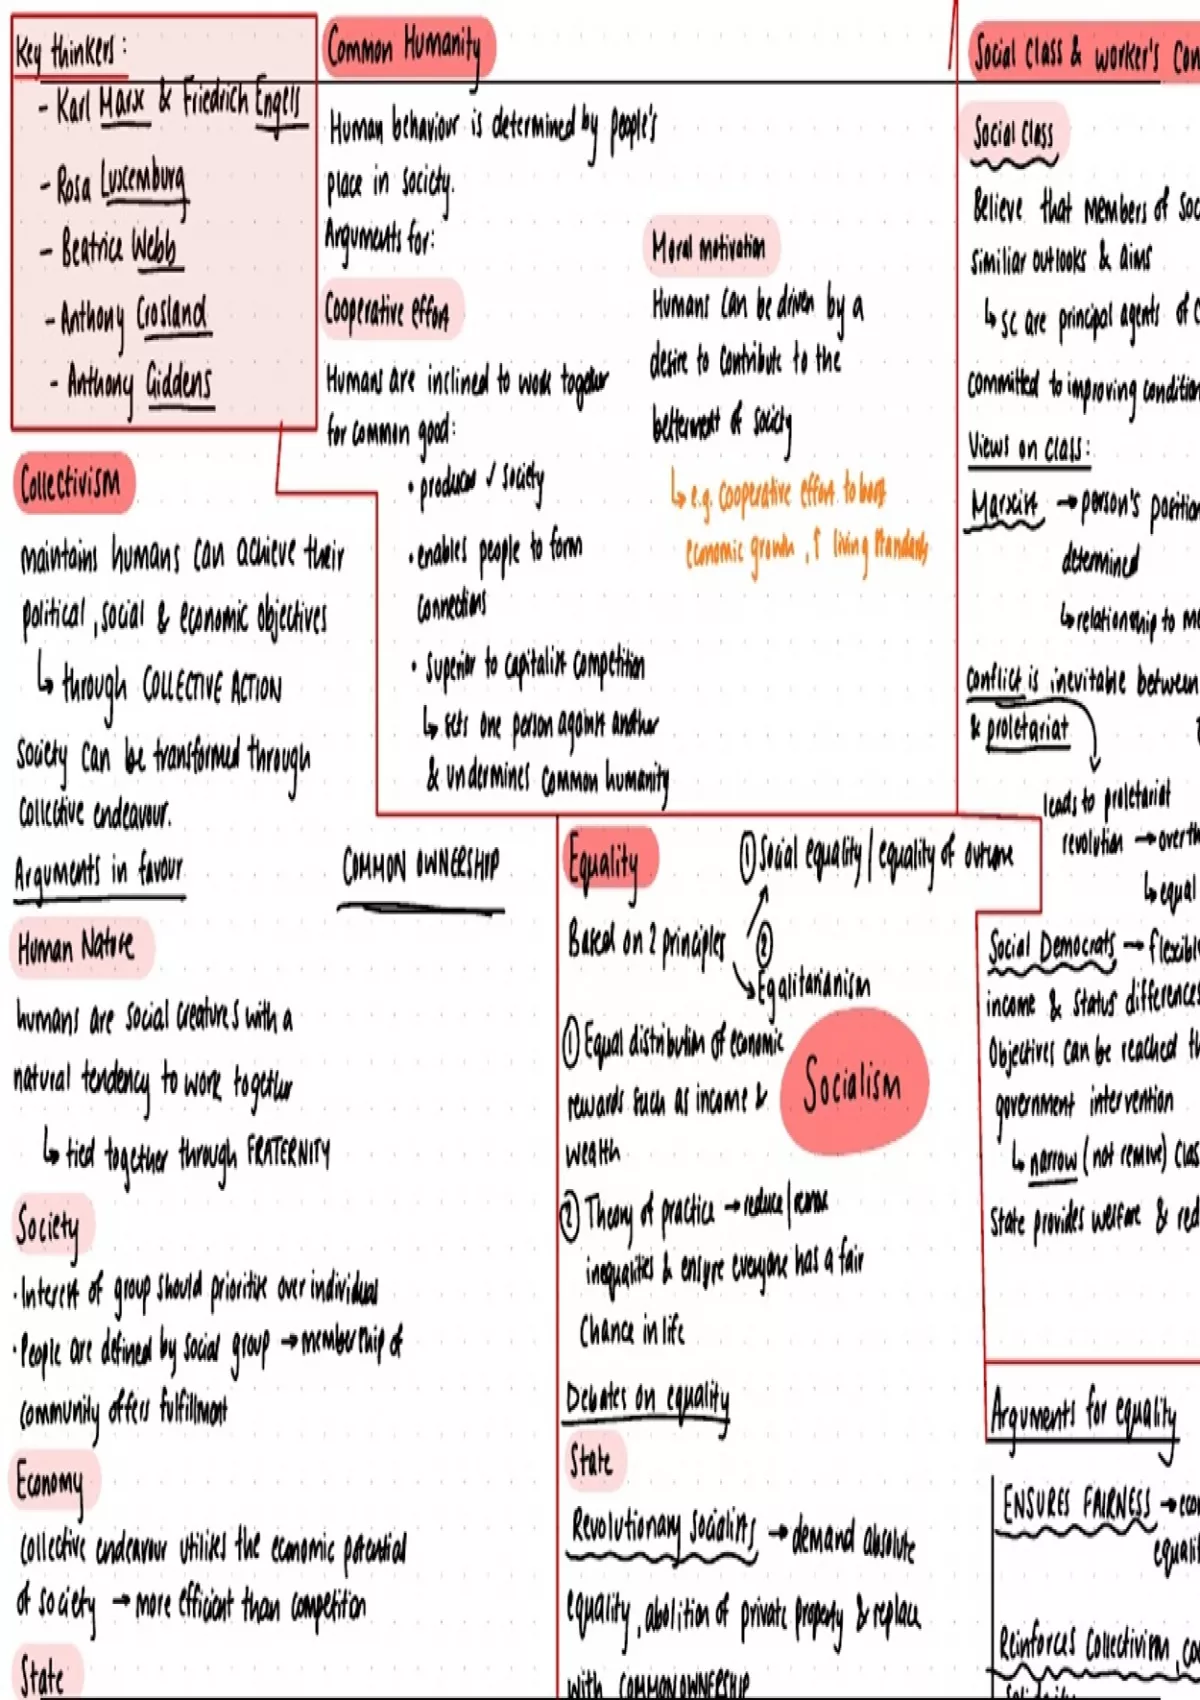 Key thinkers:
- Karl Marx & Friedrich Engels
- Rosa Luxemburg
- Beatrice Webb
- Anthony Crosland
- Anthony Giddens
Collectivism
maintains humans can achieve their
political, social & economic objectives
↳ through COLLECTIVE ACTION
Society can be transformed through
collective endeavour.
Arguments in favour
COMMON OWNERSHIP
Human Nature
humans are social creatures with a
natural tendency to work together
↳ tied together through FRATERNITY
Society
· Interest of group should prioritise over individual
· People are defined by social group → membership of
community offers fulfillment
Economy
Collective endeavour utilises the economic potential
of society → more efficient than competition
State
Common Humanity
Human behaviour is determined by people's
place in society.
Arguments for:
Cooperative effort
Humans are inclined to work together
for common good:
· produces ✓ society
· enables people to form
connections
· superior to capitalist competition
↳ sets one person against another
& undermines common humanity
Moral motivation
Humans can be driven by a
desire to contribute to the
betterment of society
↳ e.g. cooperative effort to boost
economic growth, ↑ living standards
Equality
① Social equality / equality of outcome
Based on 2 principles
②
↘ Egalitarianism
① Equal distribution of economic
rewards such as income &
wealth
② Theory of practice → reduce / remove
inequalities & ensure everyone has a fair
Chance in life
Socialism
Debates on equality
State
Revolutionary Socialists → demand absolute
equality, abolition of private property & replace
with COMMON OWNERSHIP
Social Class & worker's
Social Class
Believe that members of
similiar outlooks & aims
↳ SC are principal agents of
committed to improving
Views on Class:
Marxist → person's
determined
↳ relationship to
conflict is inevitable between
& proletariat
leads to proletariat
revolution →
↳ equal
Social Democrats →
income & status differences
Objectives can be reached
government intervention
↳ narrow (not remove)
State provides welfare &
Arguments for equality
ENSURES FAIRNESS →
Reinforces Collectivism,